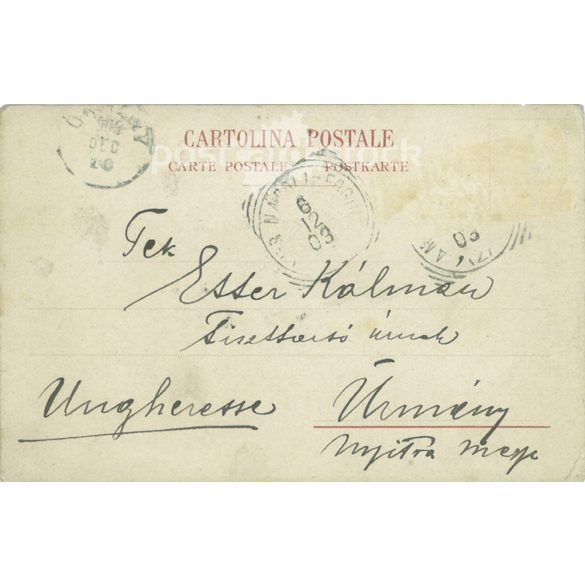 CARTOLINA POSTALE
CARTE POSTALE POSTKARTE
Tek
Esser Kálmán
Tiszttartó úrnak
Ungheresse
Ürmény
Nyitra megye